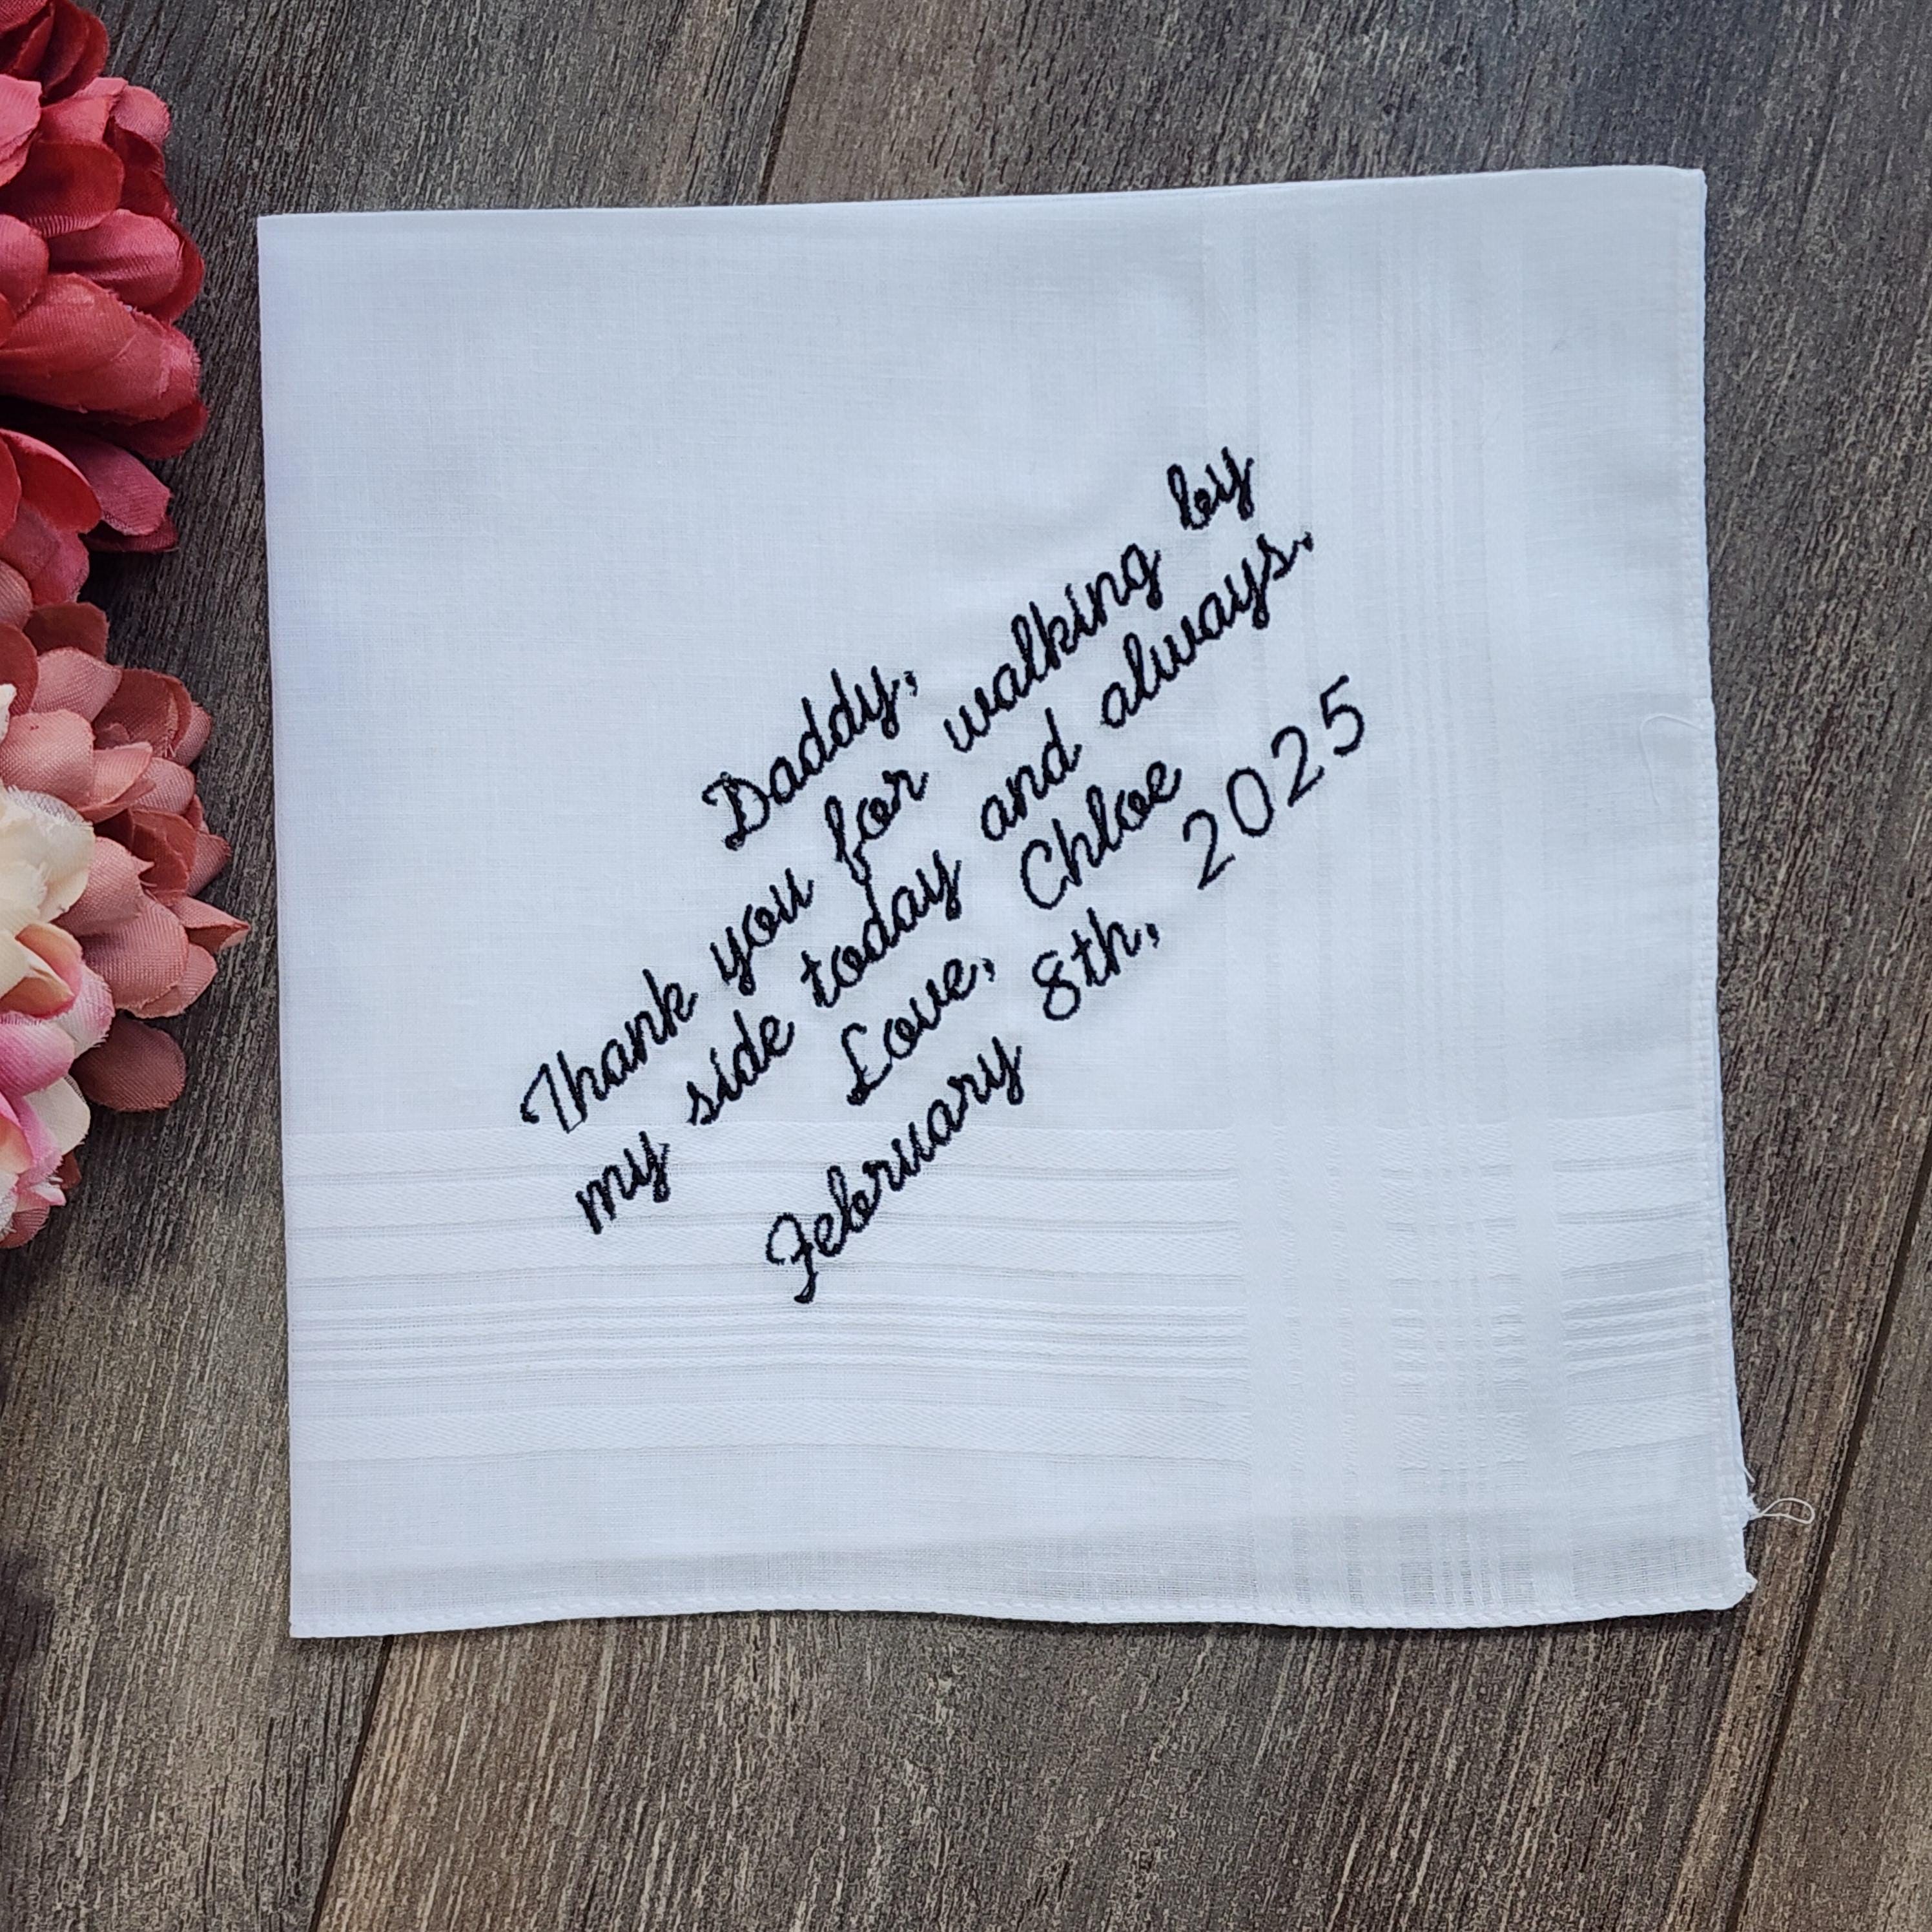 Daddy,
Thank you for walking by
my side today and always.
Love, Chloe
February 8th, 2025